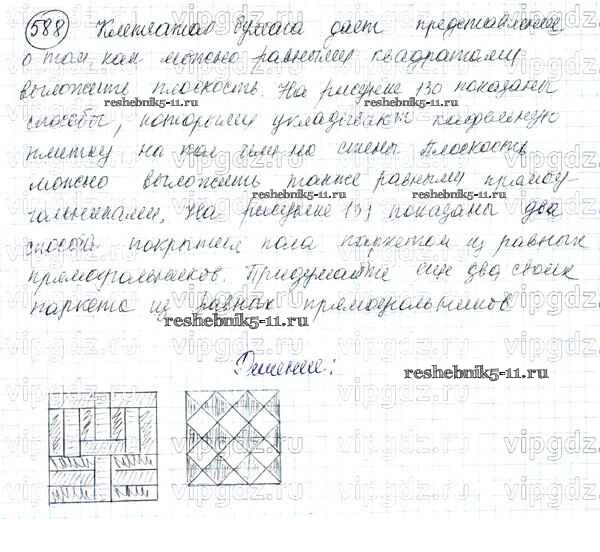 588 Клетчатая бумага дает представление
о том, как можно равными квадратами
выложить плоскость. На рисунке 130 показаны
способы, которыми укладывают кафельную
плитку на пол или на стены. Плоскость
можно выложить также равными прямоу-
гольниками, На рисунке 131 показаны два
способа покрытия пола паркетом из равных
прямоугольников. Придумайте еще два своих
паркета из равных прямоугольников
Решение:
reshebnik5-11.ru
reshebnik5-11.ru
reshebnik5-11.ru
reshebnik5-11.ru
vipgdz.com